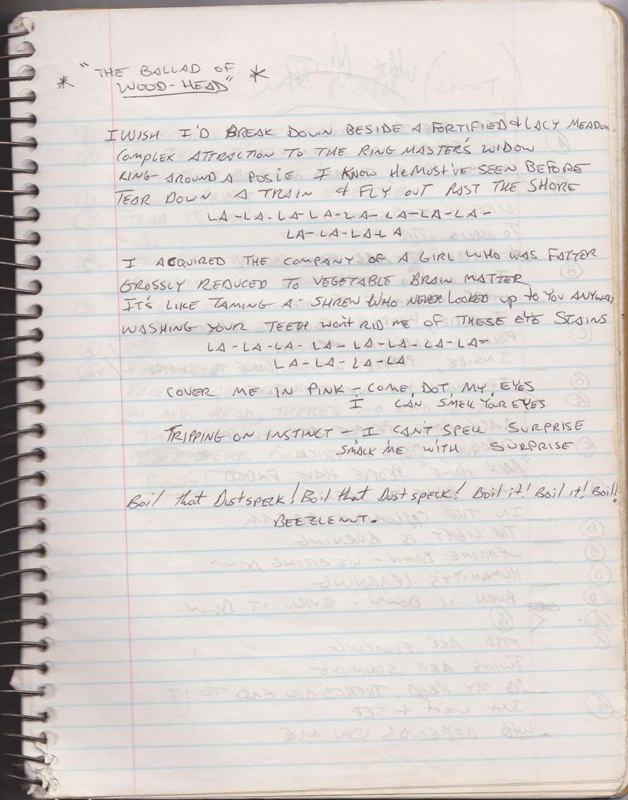 * "THE BALLAD OF
WOOD-HEAD" *
I WISH I'D BREAK DOWN BESIDE A FORTIFIED & LACY MEADOW,
COMPLEX ATTRACTION TO THE RING MASTER'S WIDOW
RING AROUND A POSIE I KNOW HE MUST'VE SEEN BEFORE
TEAR DOWN A TRAIN & FLY OUT PAST THE SHORE
LA-LA-LA-LA-LA-LA-LA-LA-
LA-LA-LA-LA
I ACQUIRED THE COMPANY OF A GIRL WHO WAS FATTER
GROSSLY REDUCED TO VEGETABLE BRAIN MATTER
IT'S LIKE TAMING A SHREW WHO NEVER LOOKED UP TO YOU ANYWAY
WASHING YOUR TEETH WON'T RID ME OF THESE EYE STAINS
LA-LA-LA-LA-LA-LA-LA-LA-
LA-LA-LA-LA
COVER ME IN PINK - COME, DOT, MY, EYES
I CAN SMELL YOUR EYES
TRIPPING ON INSTINCT - I CAN'T SPELL SURPRISE
SMACK ME WITH SURPRISE
Boil that Dustspeck! Boil that Dustspeck! Boil it! Boil it! Boil!
BEEZLENUT.